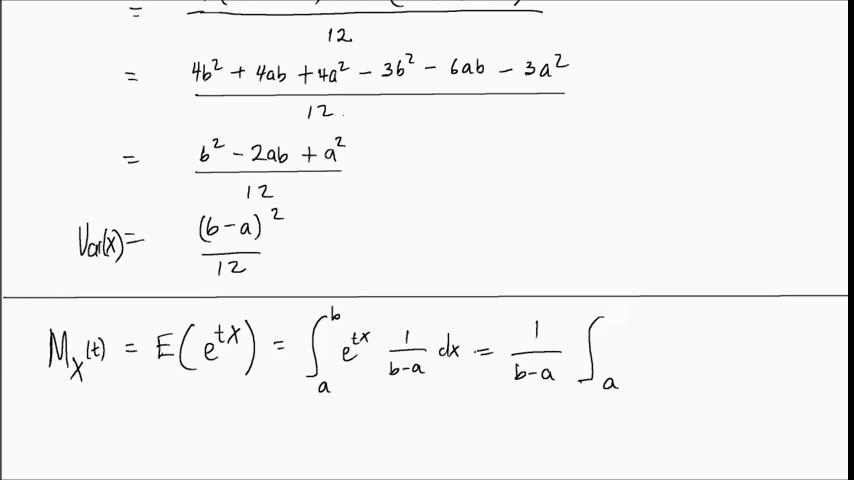 =
12
4b² + 4ab + 4a² - 3b² - 6ab - 3a²
= ―――
12
b² - 2ab + a²
= ―――
12
(b-a)²
Var(x) = ―――
12
M_X(t) = E(e^{tX}) = ∫_a^b e^{tx} 1/(b-a) dx = 1/(b-a) ∫_a